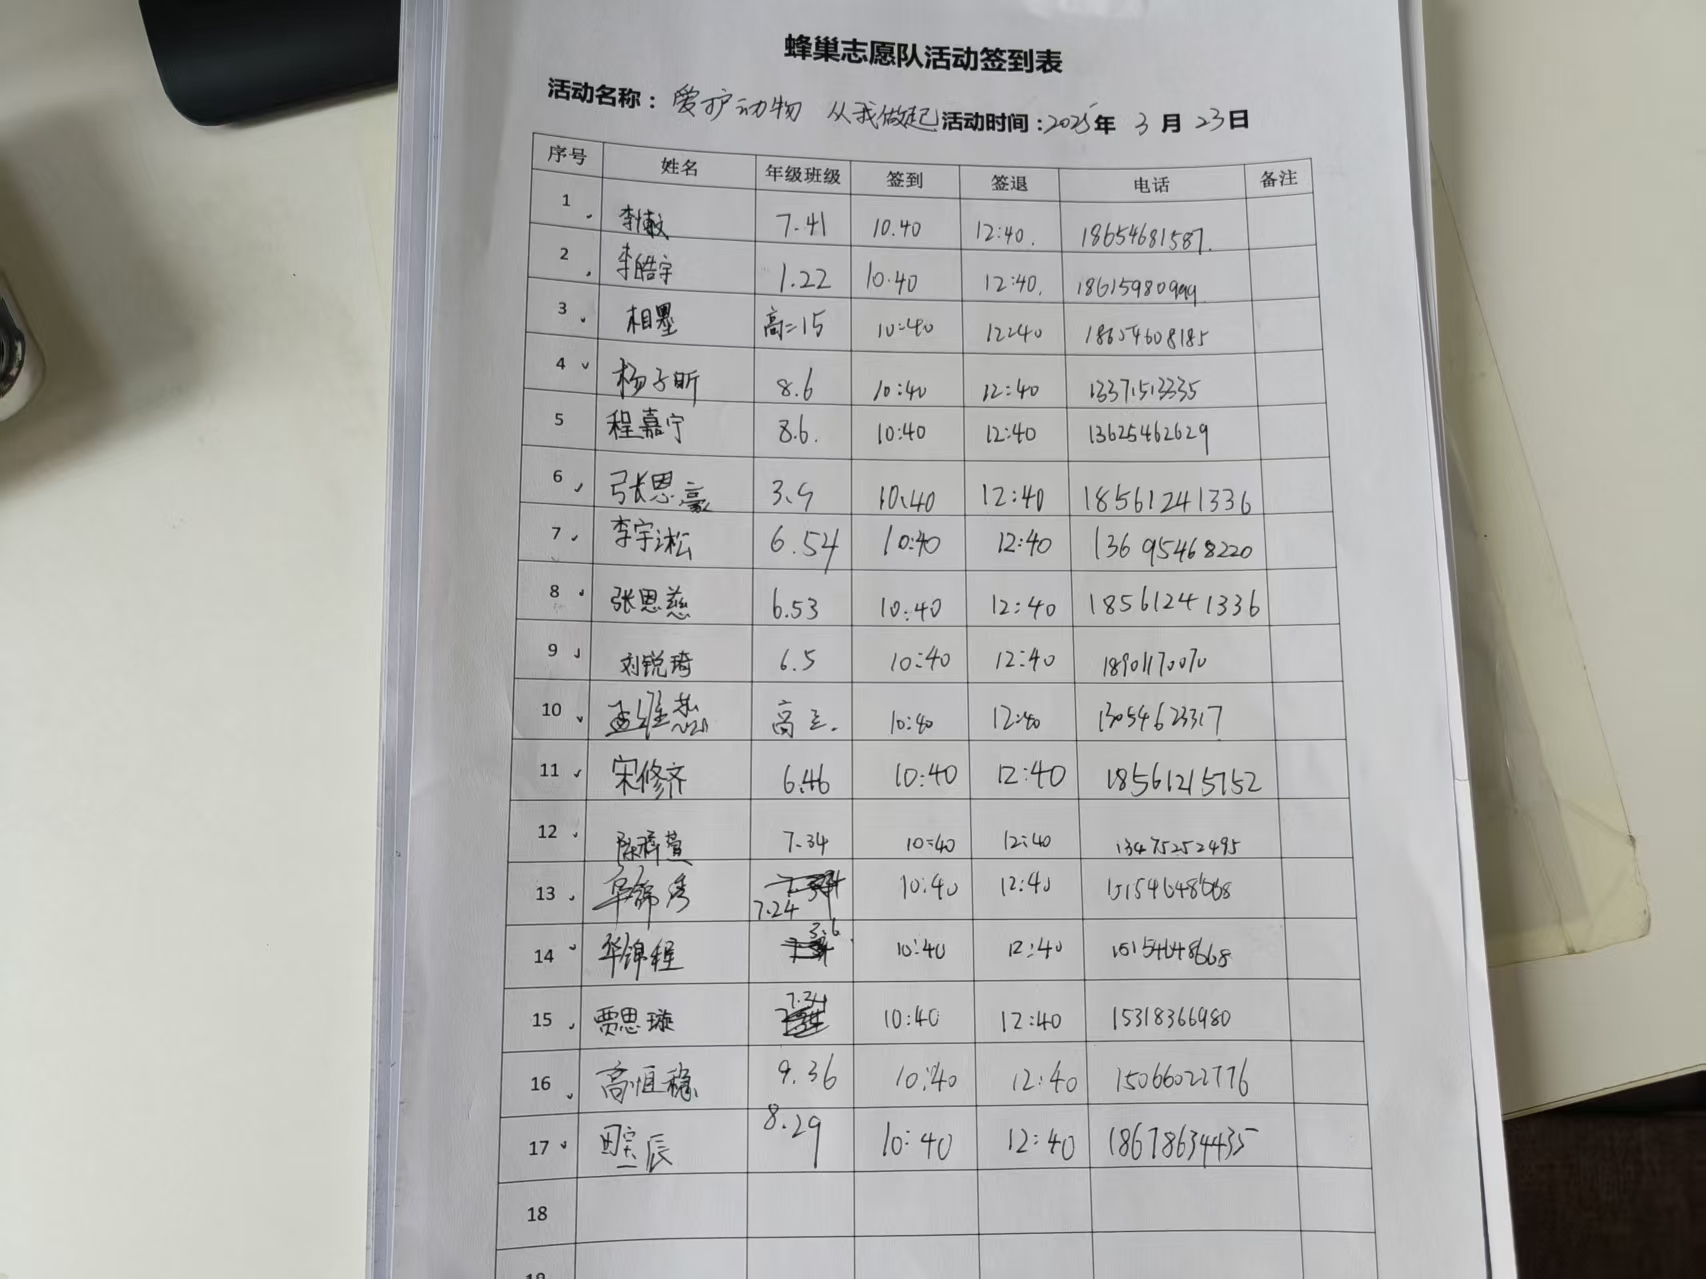 蜂巢志愿队活动签到表
活动名称：爱护动物 从我做起 活动时间：2025年 3月 23日
序号 姓名 年级班级 签到 签退 电话 备注
1 李敏 7.41 10.40 12:40. 18654681587.
2 李皓宇 1.22 10.40 12:40. 18615980999
3 相墨 高二15 10:40 12:40 18654608185
4 杨子昕 8.6 10:40 12:40 13371513335
5 程嘉宁 8.6. 10:40 12:40 13625462629
6 张恩豪 3.9 10.40 12:40 18561241336
7 李宇淞 6.54 10:40 12:40 13695468220
8 张恩慈 6.53 10:40 12:40 18561241336
9 刘锐琦 6.5 10:40 12:40 18901170070
10 孟维 高三. 10:40 12:40 13054623317
11 宋修齐 6.46 10:40 12:40 18561215752
12 陈 萱 7.34 10:40 12:40 13475252495
13 华锦秀 7.24 10:40 12:40
14 华锦程 3.6 10:40 12:40 15154648668
15 贾思璇 7.34 10:40 12:40 15318366980
16 高恒稳 9.36 10:40 12:40 15066022776
17 辰 8.29 10:40 12:40 18678634435
18